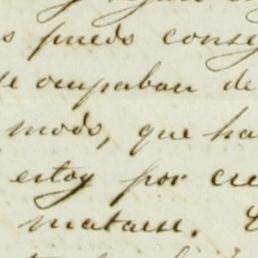 s puedo conse
se ocupaban de
modo, que ha
estoy por cre
matarse.